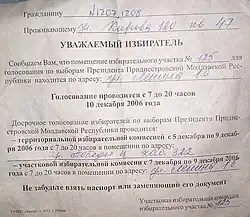 Гражданину № 1207 1208
Проживающему ул. Кирова 120 кв 47
УВАЖАЕМЫЙ ИЗБИРАТЕЛЬ
Сообщаем Вам, что помещение избирательного участка № 135 для
голосования по выборам Президента Приднестровской Молдавской Рес-
публики находится по адресу: ул. Ленина 48
Голосование проводится с 7 до 20 часов
10 декабря 2006 года
Досрочное голосование по выборам Президента Придне-
стровской Молдавской Республики проводится:
– территориальной избирательной комиссией с 5 декабря по 9 дека-
бря 2006 года с 7 до 20 часов в помещении по адресу:
– участковой избирательной комиссией с 7 по 9 декабря 2006
года с 7 до 20 часов в помещении по адресу: ул. Ленина 48
Не забудьте взять паспорт или заменяющий его документ
Участковая избирательная комиссия
избирательного участка № 135